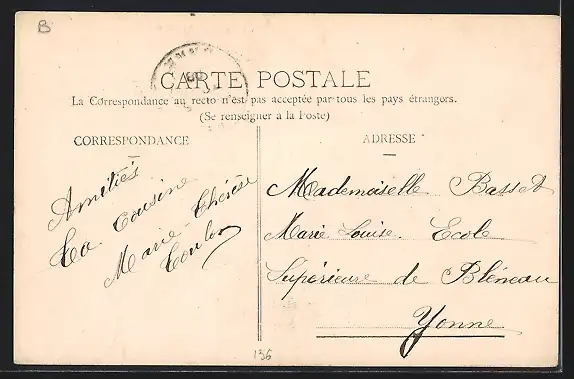 B
CARTE POSTALE
La Correspondance au recto n'est pas acceptée par tous les pays étrangers.
(Se renseigner à la Poste)
CORRESPONDANCE
ADRESSE
Amitiés
Ta cousine
Marie Thérèse
Mademoiselle Basset
Marie Louise. Ecole
Supérieure de Bléneau
Yonne
136